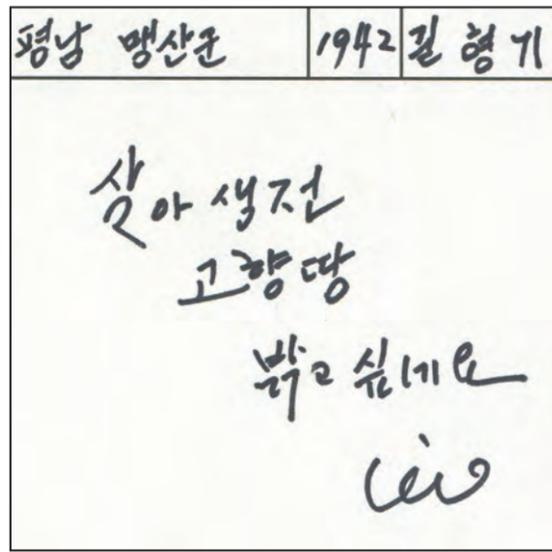 평남 맹산군 1942 길형기
살아생전
고향땅
밝고 싶네요